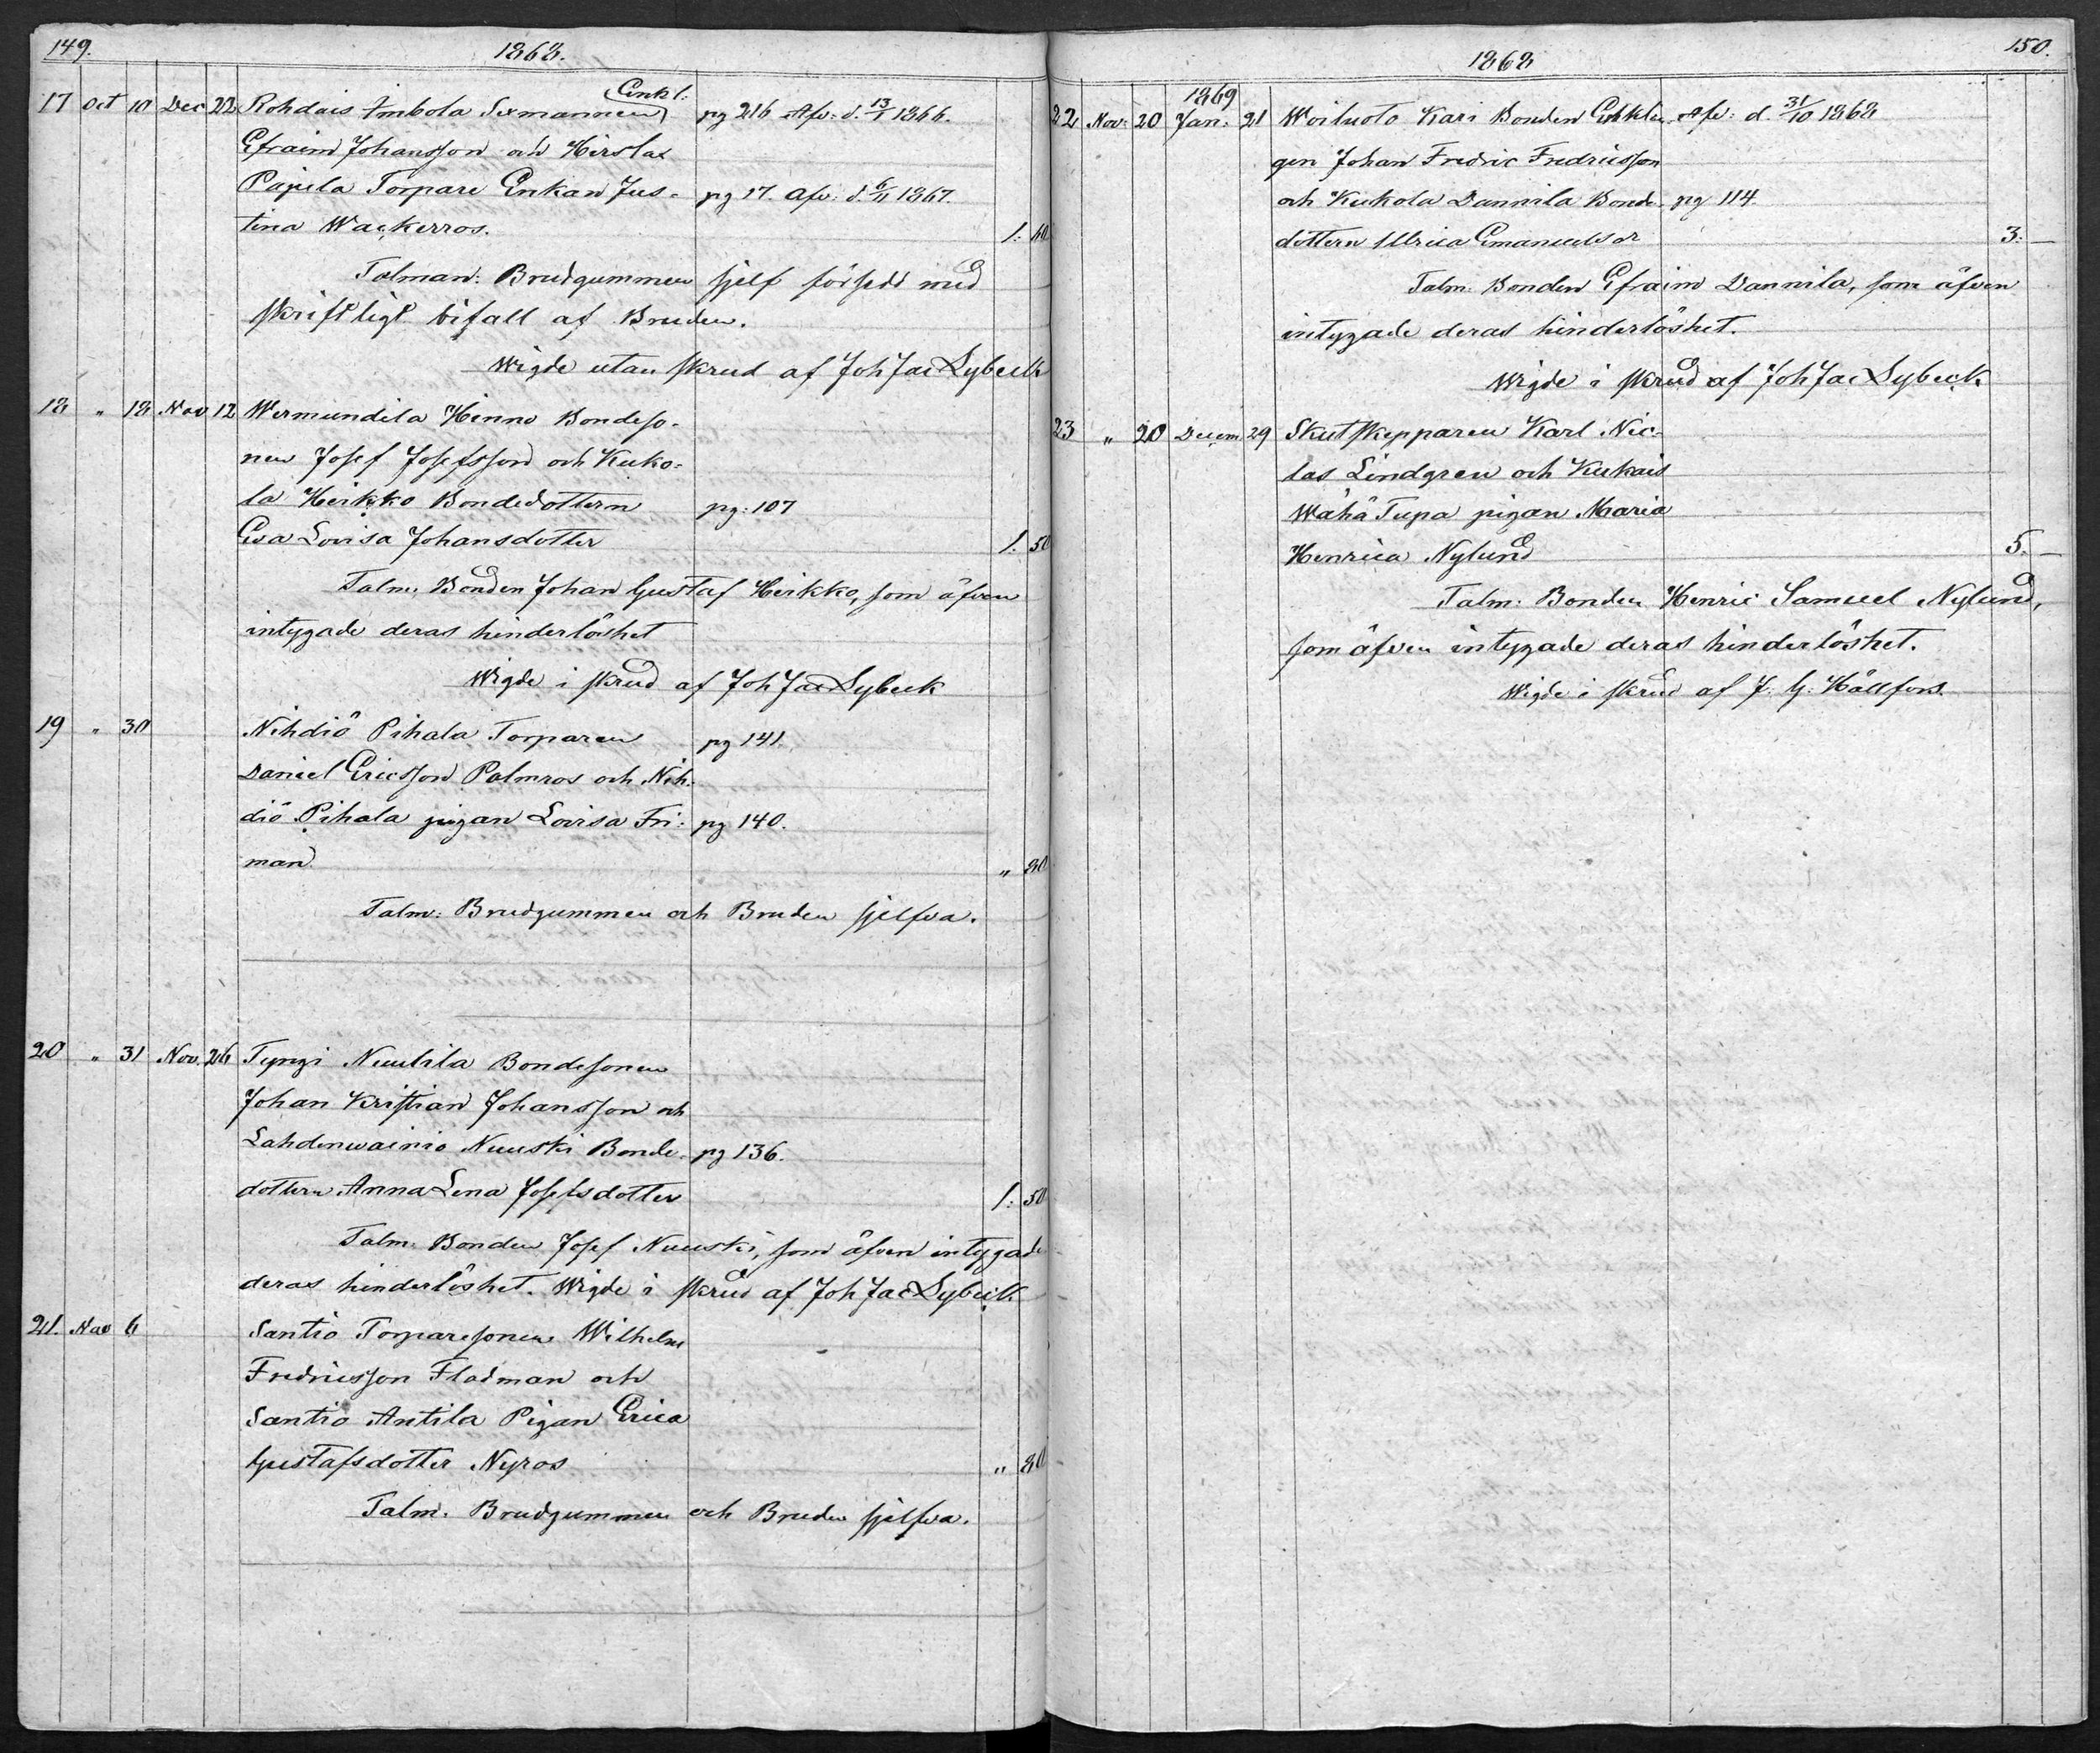 149.
1868.
17 Oct 10 Dec 22 Rohdais Ambola Sexmannen Enkl: pg 216 Afv: d. 13/1 1866.
Efraim Johansson och Hirslax
Pajula Torpare Enkan Jus- pg 17. Afv: d. 6/11 1867.
tina Wackerros. 1: 60
Talman: Brudgummen sjelf försedd med
skriftligt bifall af Bruden.
Wigde utan skrud af Joh Jac Lybeck
18 " 18 Nov 12 Wermundila Hinno Bondeso-
nen Josef Josefsson och Kuko-
la Heikko Bondedottern pg: 107
Eva Lovisa Johansdotter 1. 50
Talm: Bonden Johan Gustaf Heikko, som äfven
intygade deras hinderlöshet
Wigde i skrud af Joh Jac Lybeck
19 " 30 Nihdiö Pihala Torparen pg 141.
Daniel Ericsson Palmros och Nih-
diö Pihala pigan Lovisa Fri- pg 140.
man " 80
Talm: Brudgummen och Bruden sjelfva.
20 " 31 Nov. 26 Tyngi Nuutila Bondesonen
Johan Kristian Johansson och
Lahdenwainio Nuuski Bonde- pg 136.
dottern Anna Lena Josefsdotter 1: 50
Talm: Bonden Josef Nuuski, som äfven intygade
deras hinderlöshet. Wigde i skrud af Joh Jac Lybeck
21. Nov 6 Santio Torparesonen Wilhelm
Fredricsson Fladman och
Santio Antila Pigan Erica
Gustafsdotter Nyros " 80
Talm. Brudgummen och Bruden sjelfva.
150.
1868
1869
22 Nov: 20 Jan: 21 Woiluoto Kari Bonden Enklin- Afv: d. 31/10 1868
gen Johan Fredric Fredricsson
och Kukola Dannila Bonde- pg 114.
dottern Ulrica Emanuels dr 3: —
Talm: Bonden Efraim Dannila, som äfven
intygade deras hinderlöshet.
Wigde i skrud af Joh Jac Lybeck
23 " 20 Decem 29 Skutskepparen Karl Nic-
las Lindgren och Kukais
Wähä Tupa pigan Maria
Henrica Nylund 5. —
Talm: Bonden Henric Samuel Nylund,
som äfven intygade deras hinderlöshet.
Wigde i skrud af J. G. Hällfors.